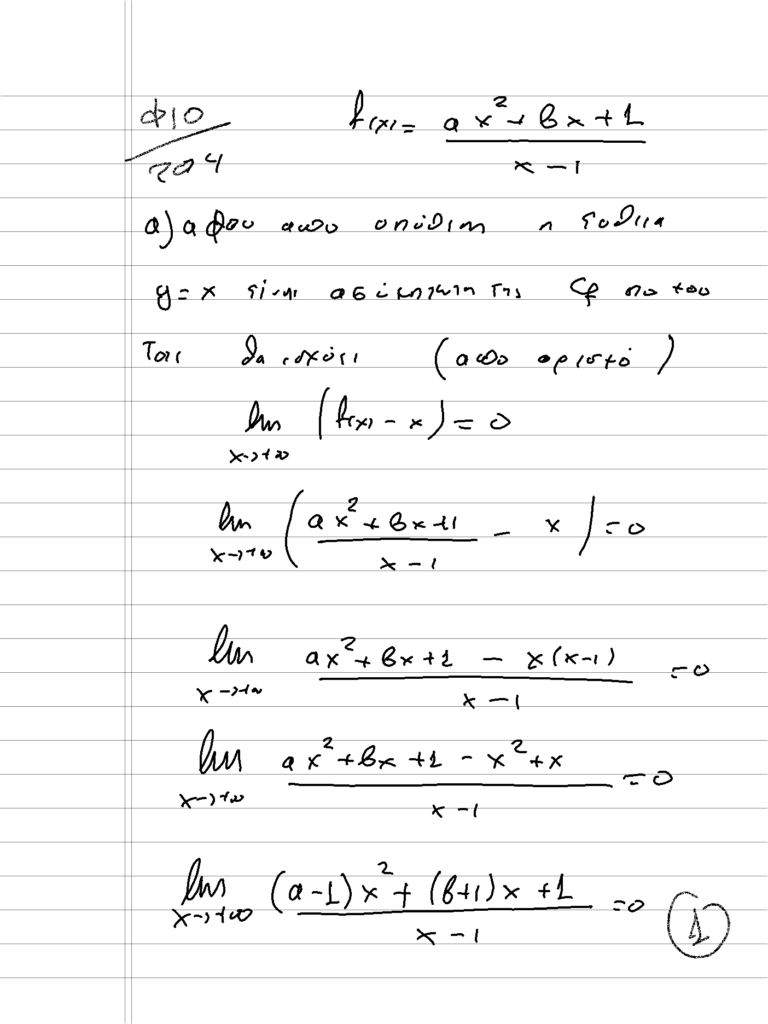 Φ10
204
f(x) = (αx² + βx + 1)/(x - 1)
α) αφού από υπόθεση η ευθεία
y = x είναι ασύμπτωτη της Cf στο +∞
Τότε θα ισχύει (από ορισμό)
lim x→+∞ (f(x) - x) = 0
lim x→+∞ ((αx² + βx + 1)/(x - 1) - x) = 0
lim x→+∞ (αx² + βx + 1 - x(x-1))/(x - 1) = 0
lim x→+∞ (αx² + βx + 1 - x² + x)/(x - 1) = 0
lim x→+∞ ((α-1)x² + (β+1)x + 1)/(x - 1) = 0 ①